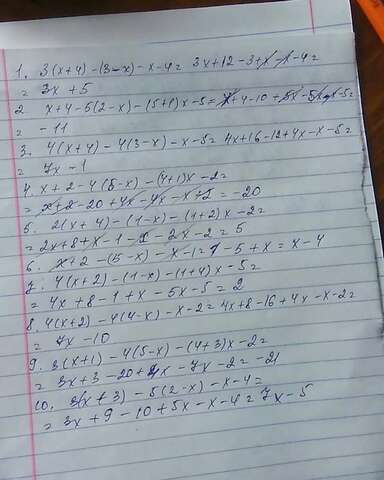 1. 3(x+4)-(3-x)-x-4= 3x+12-3+x-x-4=
= 3x+5
2 x+4-5(2-x)-(5+1)x-5= x+4-10+5x-5x-x-5=
= -11
3. 4(x+4)-4(3-x)-x-5= 4x+16-12+4x-x-5=
= 7x-1
4. x+2-4(5-x)-(4+1)x-2=
= x+2-20+4x-4x-x-2= -20
5. 2(x+4)-(1-x)-(1+2)x-2=
= 2x+8+x-1-x-2x-2=5
6. x+2-(5-x)-x-1= 1-5+x=x-4
7. 4(x+2)-(1-x)-(1+4)x-5=
= 4x+8-1+x-5x-5=2
8. 4(x+2)-4(4-x)-x-2= 4x+8-16+4x-x-2=
= 7x-10
9. 3(x+1)-4(5-x)-(4+3)x-2=
= 3x+3-20+4x-7x-2=-21
10. 3(x+3)-5(2-x)-x-4=
= 3x+9-10+5x-x-4=7x-5